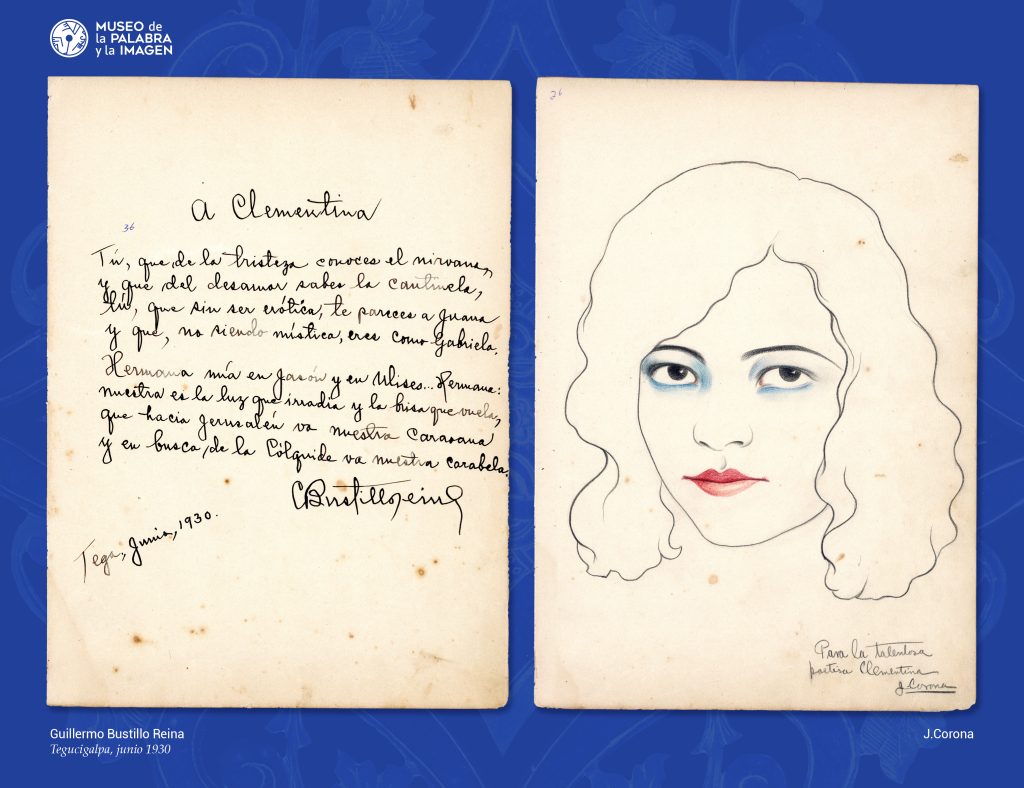 MUSEO de
la PALABRA
y la IMAGEN
A Clementina
36
Tú, que, de la tristeza conoces el nirvana,
y que del desamor sabes la cantinela,
tú, que sin ser erótica, te pareces a Juana
y que, no siendo mística, eres como Gabriela.
Hermana mía en Jasón y en Ulises... Hermana:
nuestra es la luz que irradia y la brisa que vuela,
que hacia Jerusalén va nuestra caravana
y en busca, de la Cólquide va nuestra carabela.
GBustilloreina
Tega, Junio, 1930.
26
Para la talentosa
poetisa Clementina
J. Corona
Guillermo Bustillo Reina
Tegucigalpa, junio 1930
J.Corona